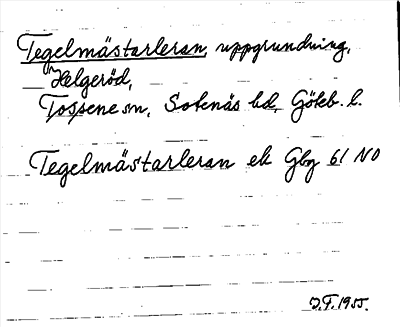 Tegelmästarleran, uppgrundning,
Helgeröd,
Tossene sn, Sotenäs hd, Göteb. l.
Tegelmästarleran ek Gbg 61 NO
J.F. 1955.